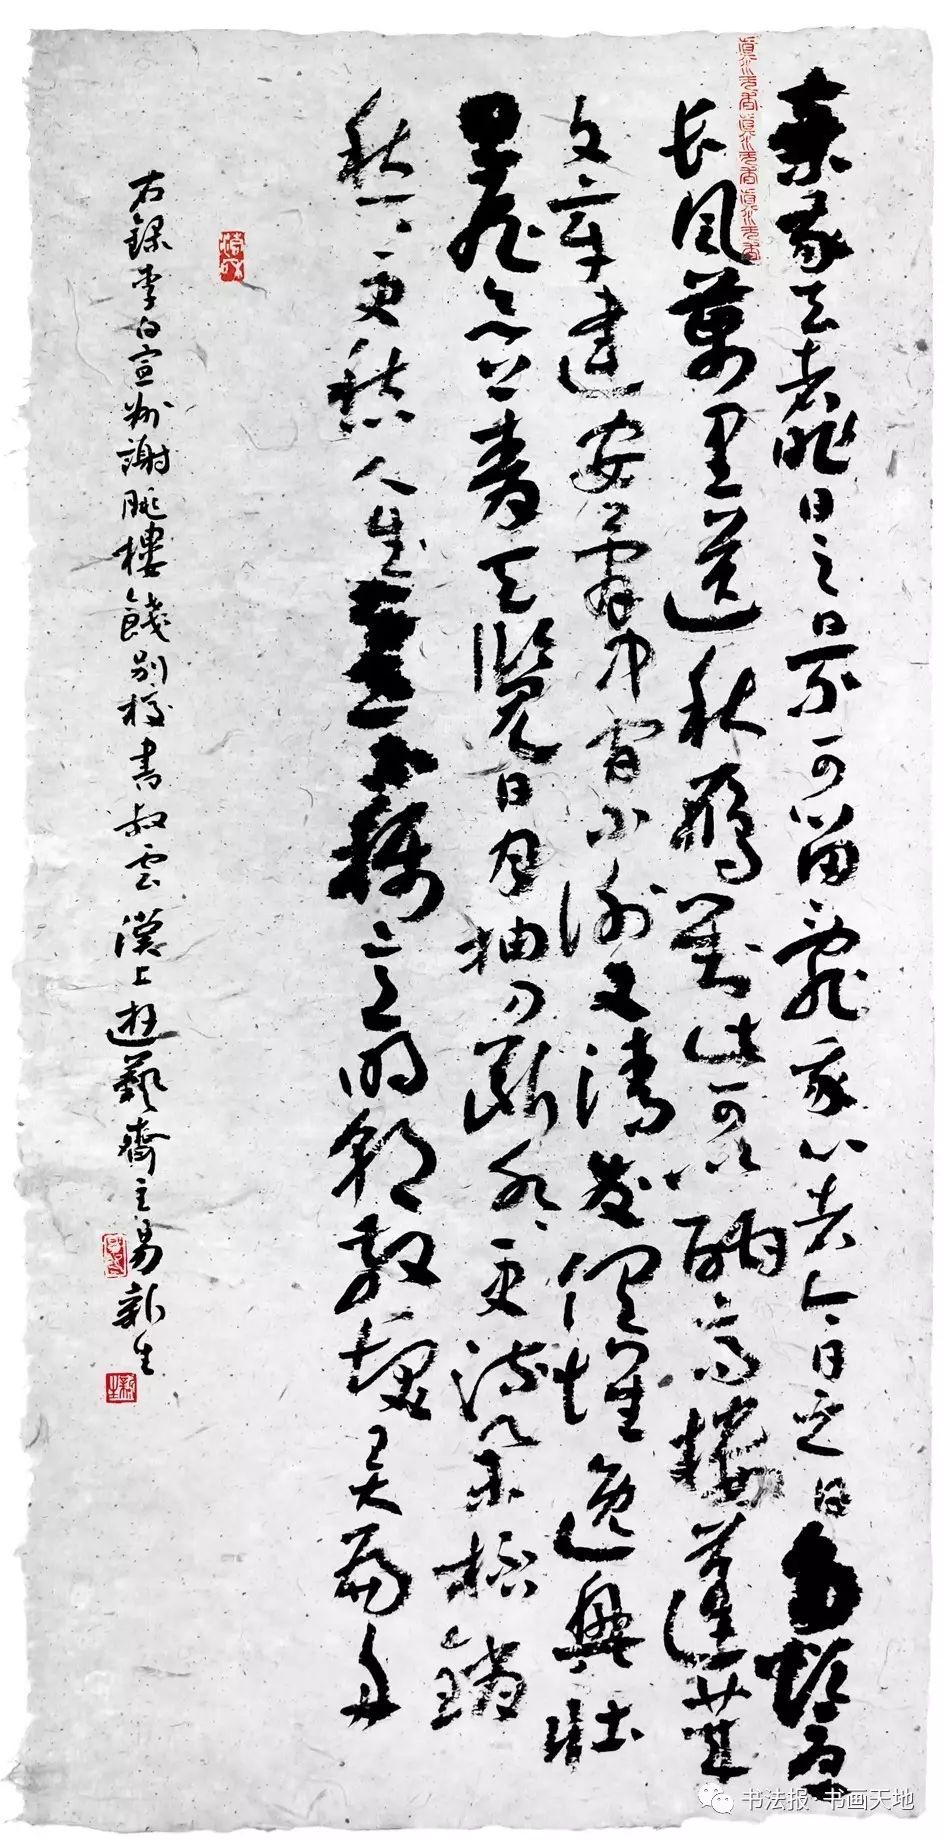 棄我去者昨日之日不可留亂我心者今日之日多煩憂
長風萬里送秋雁對此可以酣高樓蓬萊
文章建安骨中間小謝又清發俱懷逸興壯
思飛欲上青天覽日月抽刀斷水々更流舉杯銷
愁々更愁人生在世不稱意明朝散髮弄扁舟
右錄李白宣州謝朓樓餞別校書叔雲漢上遊藝齋主易新生
书法报·书画天地